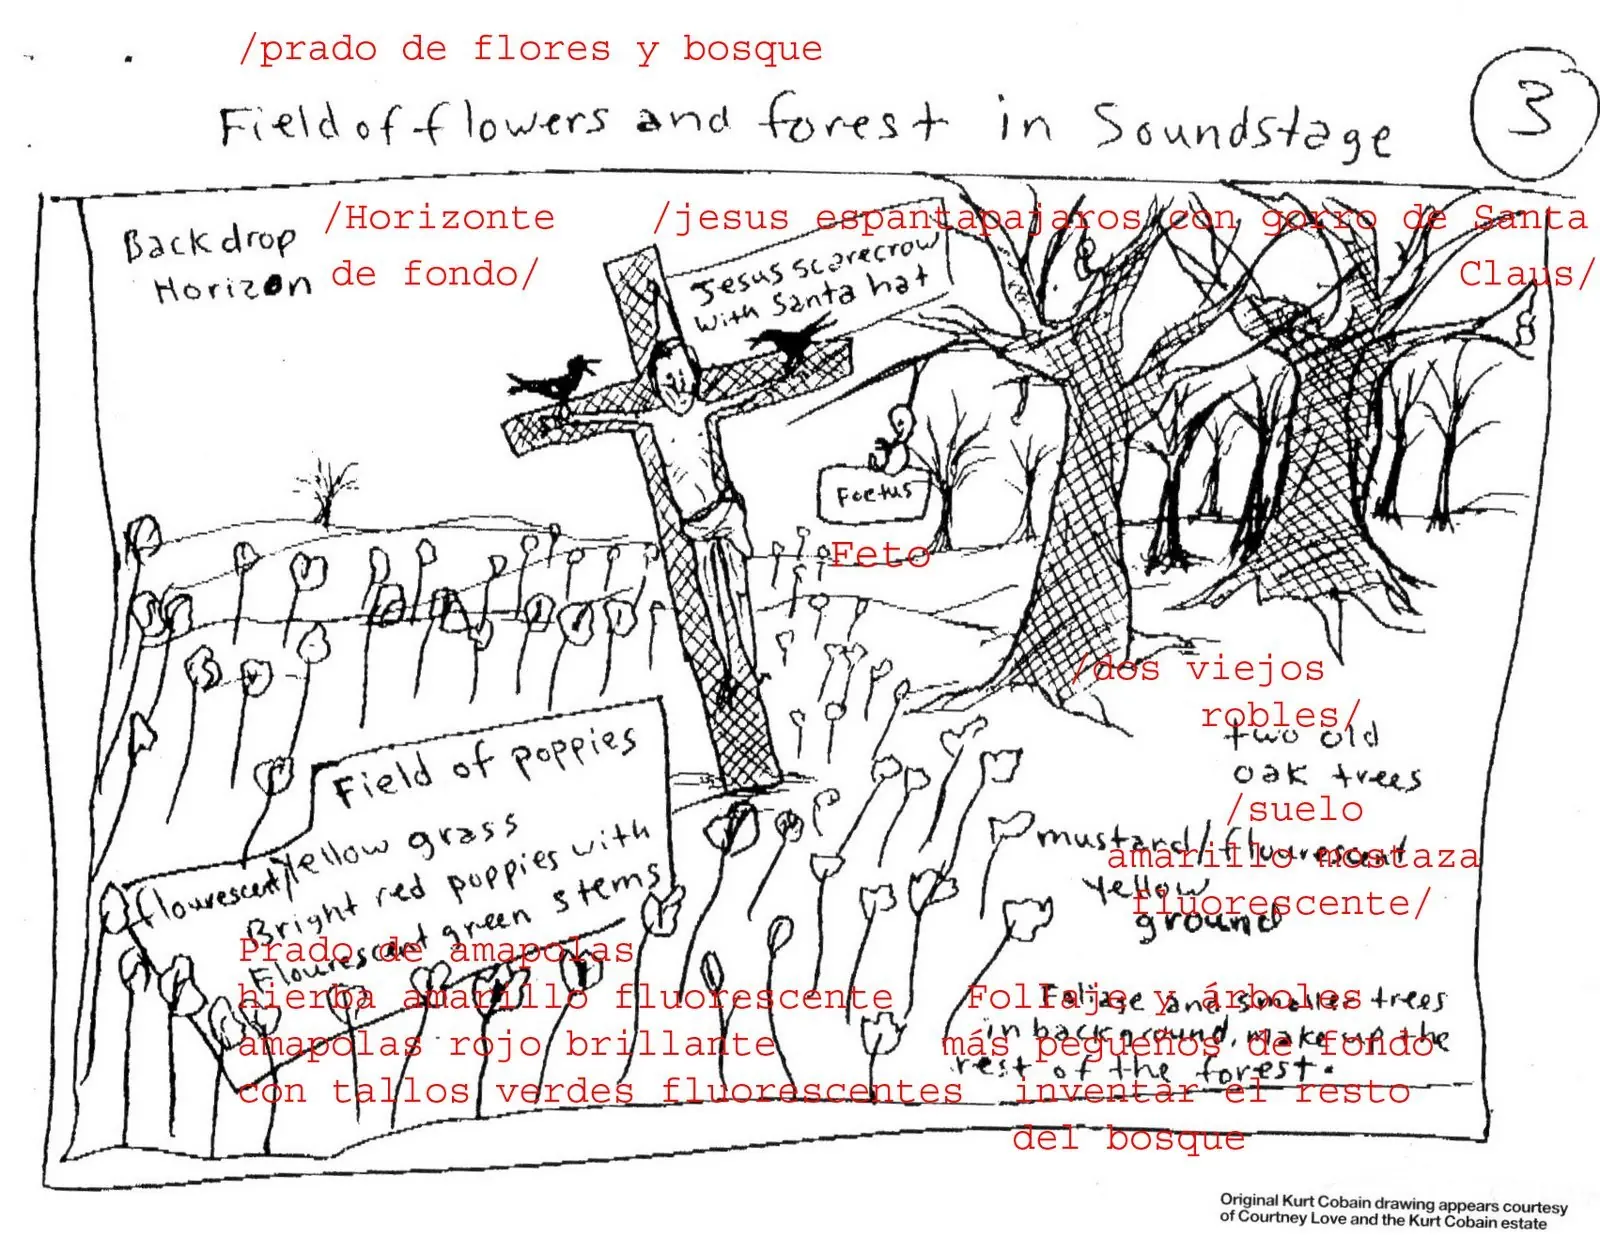 /prado de flores y bosque
Field of flowers and forest in Soundstage
3
Backdrop
Horizon
/Horizonte
de fondo/
/jesus espantapajaros con gorro de Santa
Claus/
Jesus scarecrow
with Santa hat
Foetus
Feto
/dos viejos
robles/
two old
oak trees
/suelo
amarillo mostaza
fluorescente/
mustard/flourescent
Yellow
ground
Field of poppies
flourescent/Yellow grass
Bright red poppies with
Flourescent green stems
Prado de amapolas
hierba amarillo fluorescente
amapolas rojo brillante
con tallos verdes fluorescentes
Foliage and smaller trees
in background, make up the
rest of the forest.
Follaje y árboles
más pequeños de fondo
inventar el resto
del bosque
Original Kurt Cobain drawing appears courtesy
of Courtney Love and the Kurt Cobain estate